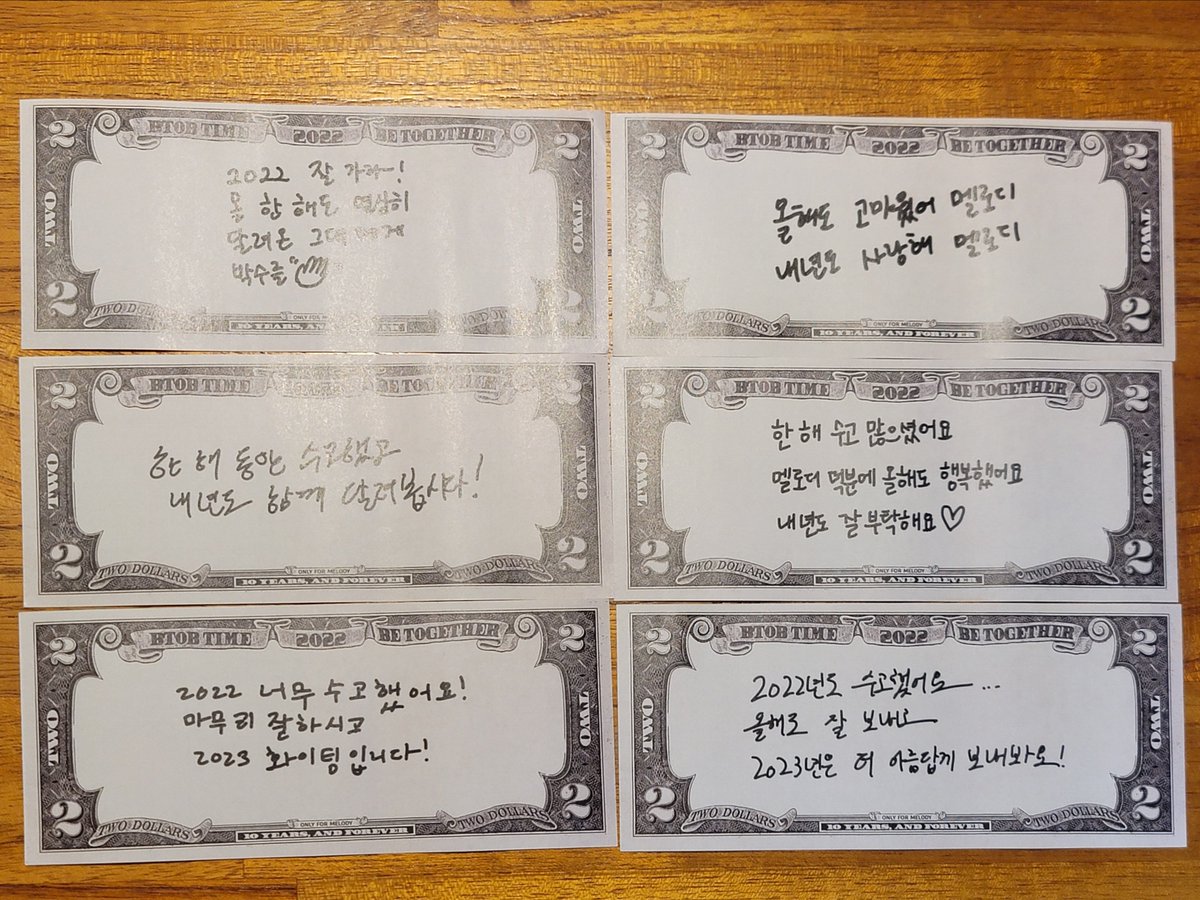 BTOB TIME 2022 BE TOGETHER
2 2
2022 잘 가라~!
올 한 해도 열심히
달려온 그대에게
박수를"
TWO TWO
2 2
TWO DOLLARS TWO DOLLARS
ONLY FOR MELODY
10 YEARS, AND FOREVER
BTOB TIME 2022 BE TOGETHER
2 2
올해도 고마웠어 멜로디
내년도 사랑해 멜로디
TWO TWO
2 2
TWO DOLLARS TWO DOLLARS
ONLY FOR MELODY
10 YEARS, AND FOREVER
BTOB TIME 2022 BE TOGETHER
2 2
한 해 동안 수고했고
내년도 함께 달려봅시다!
TWO TWO
2 2
TWO DOLLARS TWO DOLLARS
ONLY FOR MELODY
10 YEARS, AND FOREVER
BTOB TIME 2022 BE TOGETHER
2 2
한 해 수고 많으셨어요
멜로디 덕분에 올해도 행복했어요
내년도 잘 부탁해요♡
TWO TWO
2 2
TWO DOLLARS TWO DOLLARS
ONLY FOR MELODY
10 YEARS, AND FOREVER
BTOB TIME 2022 BE TOGETHER
2 2
2022 너무 수고했어요!
마무리 잘하시고
2023 화이팅입니다!
TWO TWO
2 2
TWO DOLLARS TWO DOLLARS
ONLY FOR MELODY
10 YEARS, AND FOREVER
BTOB TIME 2022 BE TOGETHER
2 2
2022년도 수고했어요...
올해도 잘 보내고
2023년은 더 아름답게 보내봐요!
TWO TWO
2 2
TWO DOLLARS TWO DOLLARS
ONLY FOR MELODY
10 YEARS, AND FOREVER